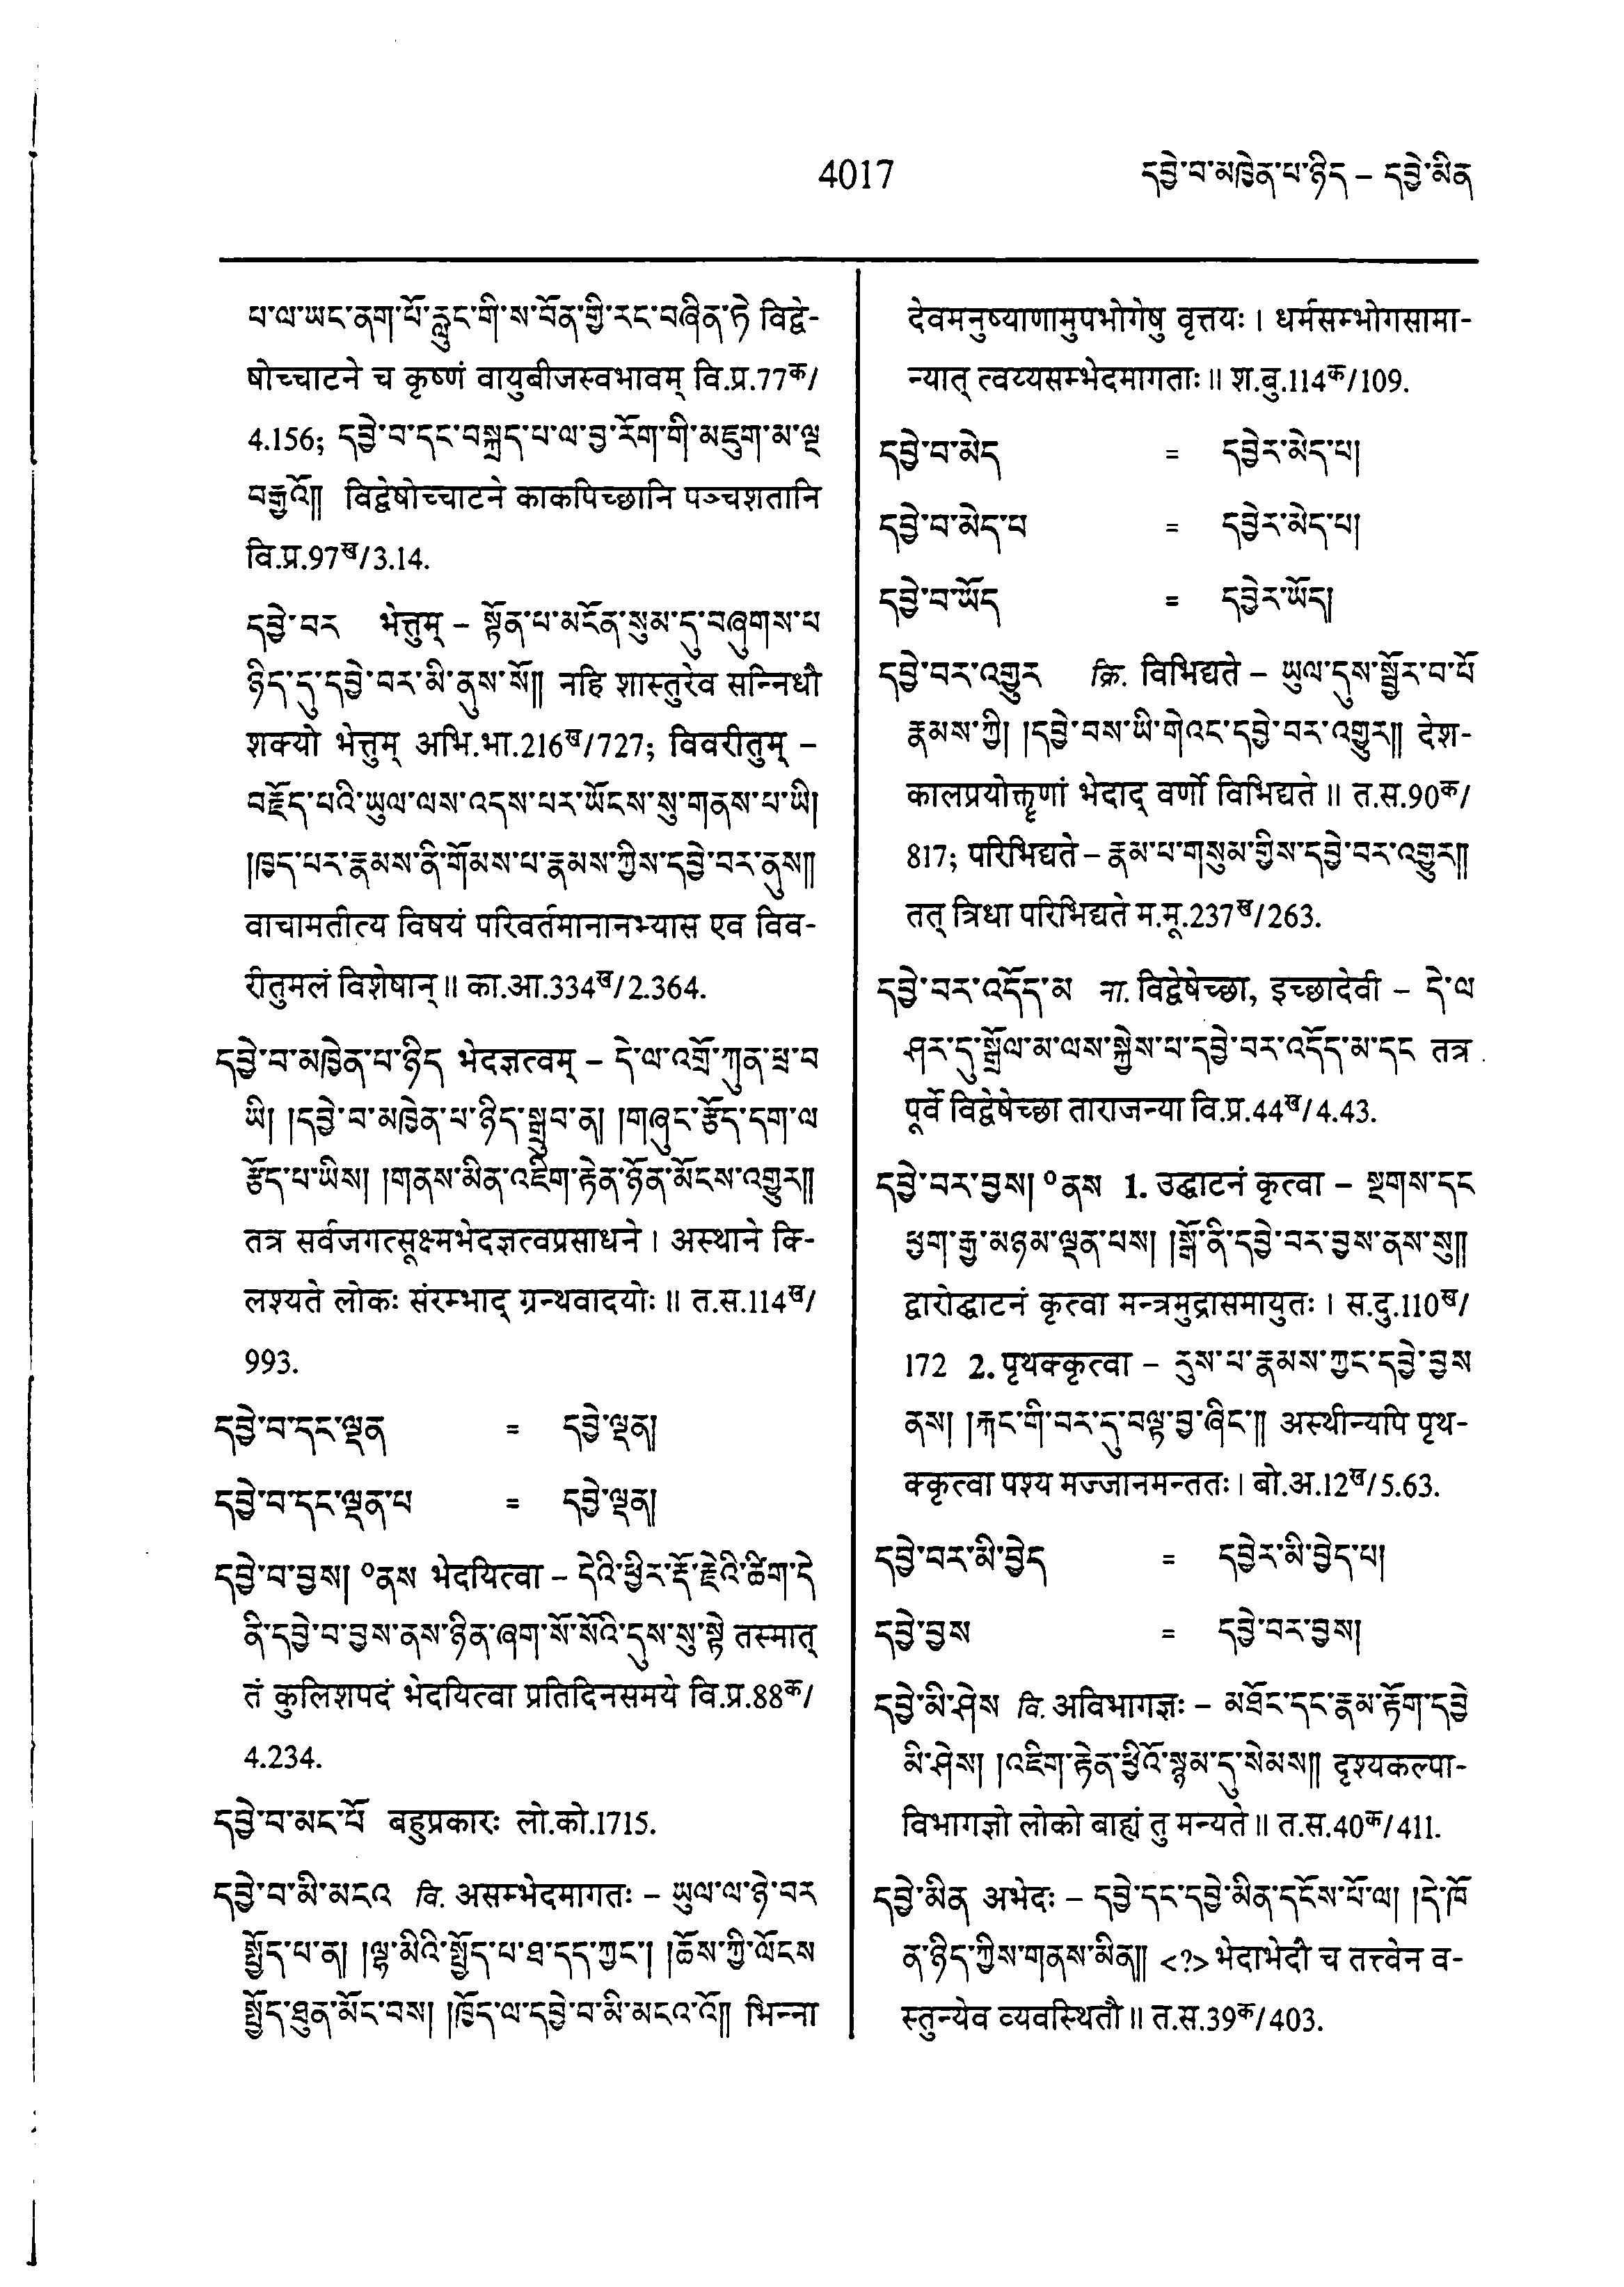 4017
དབྱེ་བ་མཁྱེན་པ་ཉིད – དབྱེ་མིན
པ་ལ་ཡང་ནག་པོ་རླུང་གི་ས་བོན་གྱི་རང་བཞིན་ཏེ विद्वे-
षोच्चाटने च कृष्णं वायुबीजस्वभावम् वि.प्र.77क/
4.156; དབྱེ་བ་དང་བསྐྲད་པ་ལ་བྱ་རོག་གི་མཇུག་མ་ལྔ
བརྒྱའོ༎ विद्वेषोच्चाटने काकपिच्छानि पञ्चशतानि
वि.प्र.97ख/3.14.
དབྱེ་བར भेत्तुम् – སྟོན་པ་མངོན་སུམ་དུ་བཞུགས་པ
ཉིད་དུ་དབྱེ་བར་མི་ནུས་སོ༎ नहि शास्तुरेव सन्निधौ
शक्यो भेत्तुम् अभि.भा.216ख/727; विवरीतुम् –
བརྗོད་པའི་ཡུལ་ལས་འདས་པར་ཡོངས་སུ་གནས་པ་ཡི།
།ཁྱད་པར་རྣམས་ནི་གོམས་པ་རྣམས་ཀྱིས་དབྱེ་བར་ནུས༎
वाचामतीत्य विषयं परिवर्तमानानभ्यास एव विव-
रीतुमलं विशेषान्॥ का.आ.334ख/2.364.
དབྱེ་བ་མཁྱེན་པ་ཉིད भेदज्ञत्वम् – དེ་ལ་འགྲོ་ཀུན་ཕྲ་བ
ཡི། །དབྱེ་བ་མཁྱེན་པ་ཉིད་སྒྲུབ་ན། །གཞུང་རྩོད་དག་ལ
རྩོད་པ་ཡིས། །གནས་མིན་འཇིག་རྟེན་ཉོན་མོངས་འགྱུར༎
तत्र सर्वजगत्सूक्ष्मभेदज्ञत्वप्रसाधने। अस्थाने क्लि-
लश्यते लोकः संरम्भाद् ग्रन्थवादयोः॥ त.स.114ख/
993.
དབྱེ་བ་དང་ལྡན = དབྱེ་ལྡན།
དབྱེ་བ་དང་ལྡན་པ = དབྱེ་ལྡན།
དབྱེ་བ་བྱས། ༠ནས भेदयित्वा – དེའི་ཕྱིར་རྡོ་རྗེའི་ཚིག་དེ
ནི་དབྱེ་བ་བྱས་ནས་ཉིན་ཞག་སོ་སོའི་དུས་སུ་སྟེ तस्मात्
तं कुलिशपदं भेदयित्वा प्रतिदिनसमये वि.प्र.88क/
4.234.
དབྱེ་བ་མང་པོ बहुप्रकारः लो.को.1715.
དབྱེ་བ་མི་མངའ वि. असम्भेदमागतः – ཡུལ་ལ་ཉེ་བར
སྤྱོད་པ་ན། །ལྷ་མིའི་སྤྱོད་པ་ཐ་དད་ཀྱང་། །ཆོས་ཀྱི་ལོངས
སྤྱོད་ཐུན་མོང་བས། །ཁྱོད་ལ་དབྱེ་བ་མི་མངའ་འོ༎ भिन्ना
देवमनुष्याणामुपभोगेषु वृत्तयः। धर्मसम्भोगसामा-
न्यात् त्वय्यसम्भेदमागताः॥ श.बु.114क/109.
དབྱེ་བ་མེད = དབྱེར་མེད་པ།
དབྱེ་བ་མེད་པ = དབྱེར་མེད་པ།
དབྱེ་བ་ཡོད = དབྱེར་ཡོད།
དབྱེ་བར་འགྱུར क्रि. विभिद्यते – ཡུལ་དུས་སྦྱོར་བ་པོ
རྣམས་ཀྱི། །དབྱེ་བས་ཡི་གེའང་དབྱེ་བར་འགྱུར༎ देश-
कालप्रयोक्तॄणां भेदाद् वर्णो विभिद्यते॥ त.स.90क/
817; परिभिद्यते – རྣམ་པ་གསུམ་གྱིས་དབྱེ་བར་འགྱུར༎
तत् त्रिधा परिभिद्यते म.मू.237ख/263.
དབྱེ་བར་འདོད་མ ना. विद्वेषेच्छा, इच्छादेवी – དེ་ལ
ཤར་དུ་སྒྲོལ་མ་ལས་སྐྱེས་པ་དབྱེ་བར་འདོད་མ་དང तत्र
पूर्वे विद्वेषेच्छा ताराजन्या वि.प्र.44ख/4.43.
དབྱེ་བར་བྱས། ༠ནས 1. उद्घाटनं कृत्वा – སྔགས་དང
ཕྱག་རྒྱ་མཉམ་ལྡན་པས། །སྒོ་ནི་དབྱེ་བར་བྱས་ནས་སུ༎
द्वारोद्घाटनं कृत्वा मन्त्रमुद्रासमायुतः। स.दु.110ख/
172 2. पृथक्कृत्वा – རུས་པ་རྣམས་ཀྱང་དབྱེ་བྱས
ནས། །རྐང་གི་བར་དུ་བལྟ་བྱ་ཞིང་༎ अस्थीन्यपि पृथ-
क्कृत्वा पश्य मज्जानमन्ततः। बो.अ.12ख/5.63.
དབྱེ་བར་མི་བྱེད = དབྱེར་མི་བྱེད་པ།
དབྱེ་བྱས = དབྱེ་བར་བྱས།
དབྱེ་མི་ཤེས वि. अविभागज्ञः – མཐོང་དང་རྣམ་རྟོག་དབྱེ
མི་ཤེས། །འཇིག་རྟེན་ཕྱིའོ་སྙམ་དུ་སེམས༎ दृश्यकल्पा-
विभागज्ञो लोको बाह्यं तु मन्यते॥ त.स.40क/411.
དབྱེ་མིན अभेदः – དབྱེ་དང་དབྱེ་མིན་དངོས་པོ་ལ། །དེ་ཁོ
ན་ཉིད་ཀྱིས་གནས་མིན༎ <?> भेदाभेदौ च तत्त्वेन व-
स्तुन्येव व्यवस्थितौ॥ त.स.39क/403.